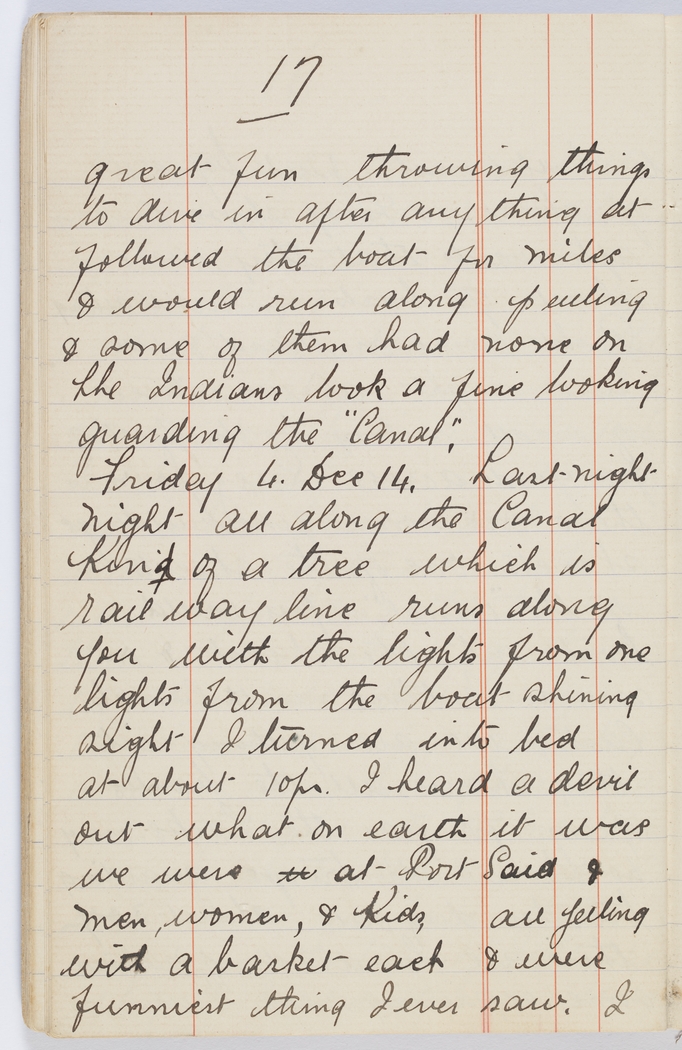 17
great fun throwing things
to dive in after anything at
followed the boat for miles
& would run along
& some of them had none on
the Indians look a fine looking
guarding the "Canal".
Friday 4. Dec 14. Last night
night all along the Canal
Kind of a tree which is
railway line runs along
you with the lights from one
lights from the boat shining
sight I turned into bed
at about 10pm. I heard a devil
out what on earth it was
we were at Port Said &
men, women, & Kids, all yelling
with a basket each & were
funniest thing I ever saw. I